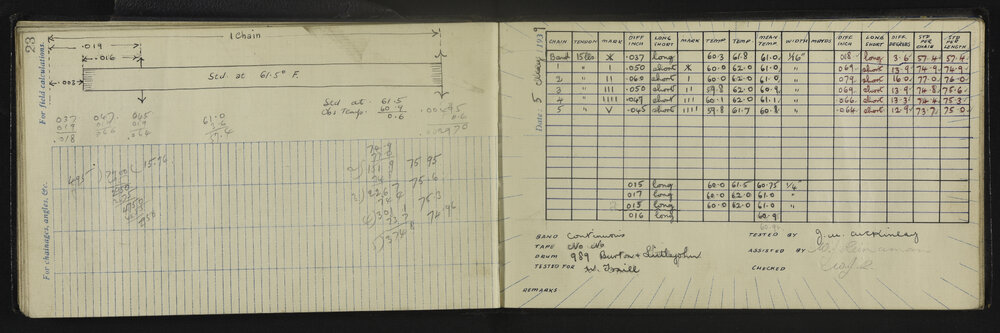 23
For field calculations.
For chainages, angles, &c.
1 Chain
.019
.016
.003
Std. at 61.5° F.
Std at 61.5
Obs Temp 60.9
0.6
.00495
0.6
.002970
037 047 045
019 019
.018 .066 .064
61.0
3.6
57.4
495) 7900 (15.96
75.95
75.6
75.3
74.96
Date: 5 May 1939
CHAIN TENSION MARK DIFF INCH LONG SHORT MARK TEMP TEMP MEAN TEMP. WIDTH MARKS DIFF INCH LONG SHORT DIFF. DEGREES STD PER CHAIN STD PER LENGTH
Band 15 lbs X .037 long 60.3 61.8 61.0 1/16" .018 long 3.6 57.4 57.4
1 " I .050 short X 60.0 62.0 61.0 " .069 short 13.9 74.9 74.9
2 " II .060 short I 60.0 62.0 61.0 " .079 short 16.0 77.0 76.0
3 " III .050 short II 59.8 62.0 60.9 " .069 short 13.9 74.8 75.6
4 " IIII .047 short III 60.1 62.0 61.1 " .066 short 13.3 74.4 75.3
5 " V .045 short IIII 59.8 61.7 60.8 " .064 short 12.9 73.7 75.0
015 long 60.0 61.5 60.75 1/16"
017 long 60.0 62.0 61.0 "
015 long 60.0 62.0 61.0 "
016 long 60.9
60.92
BAND Continuous
TAPE No No
DRUM 989 Burton & Littlejohn
TESTED FOR
TESTED BY J.W. McKinlay
ASSISTED BY
CHECKED
REMARKS